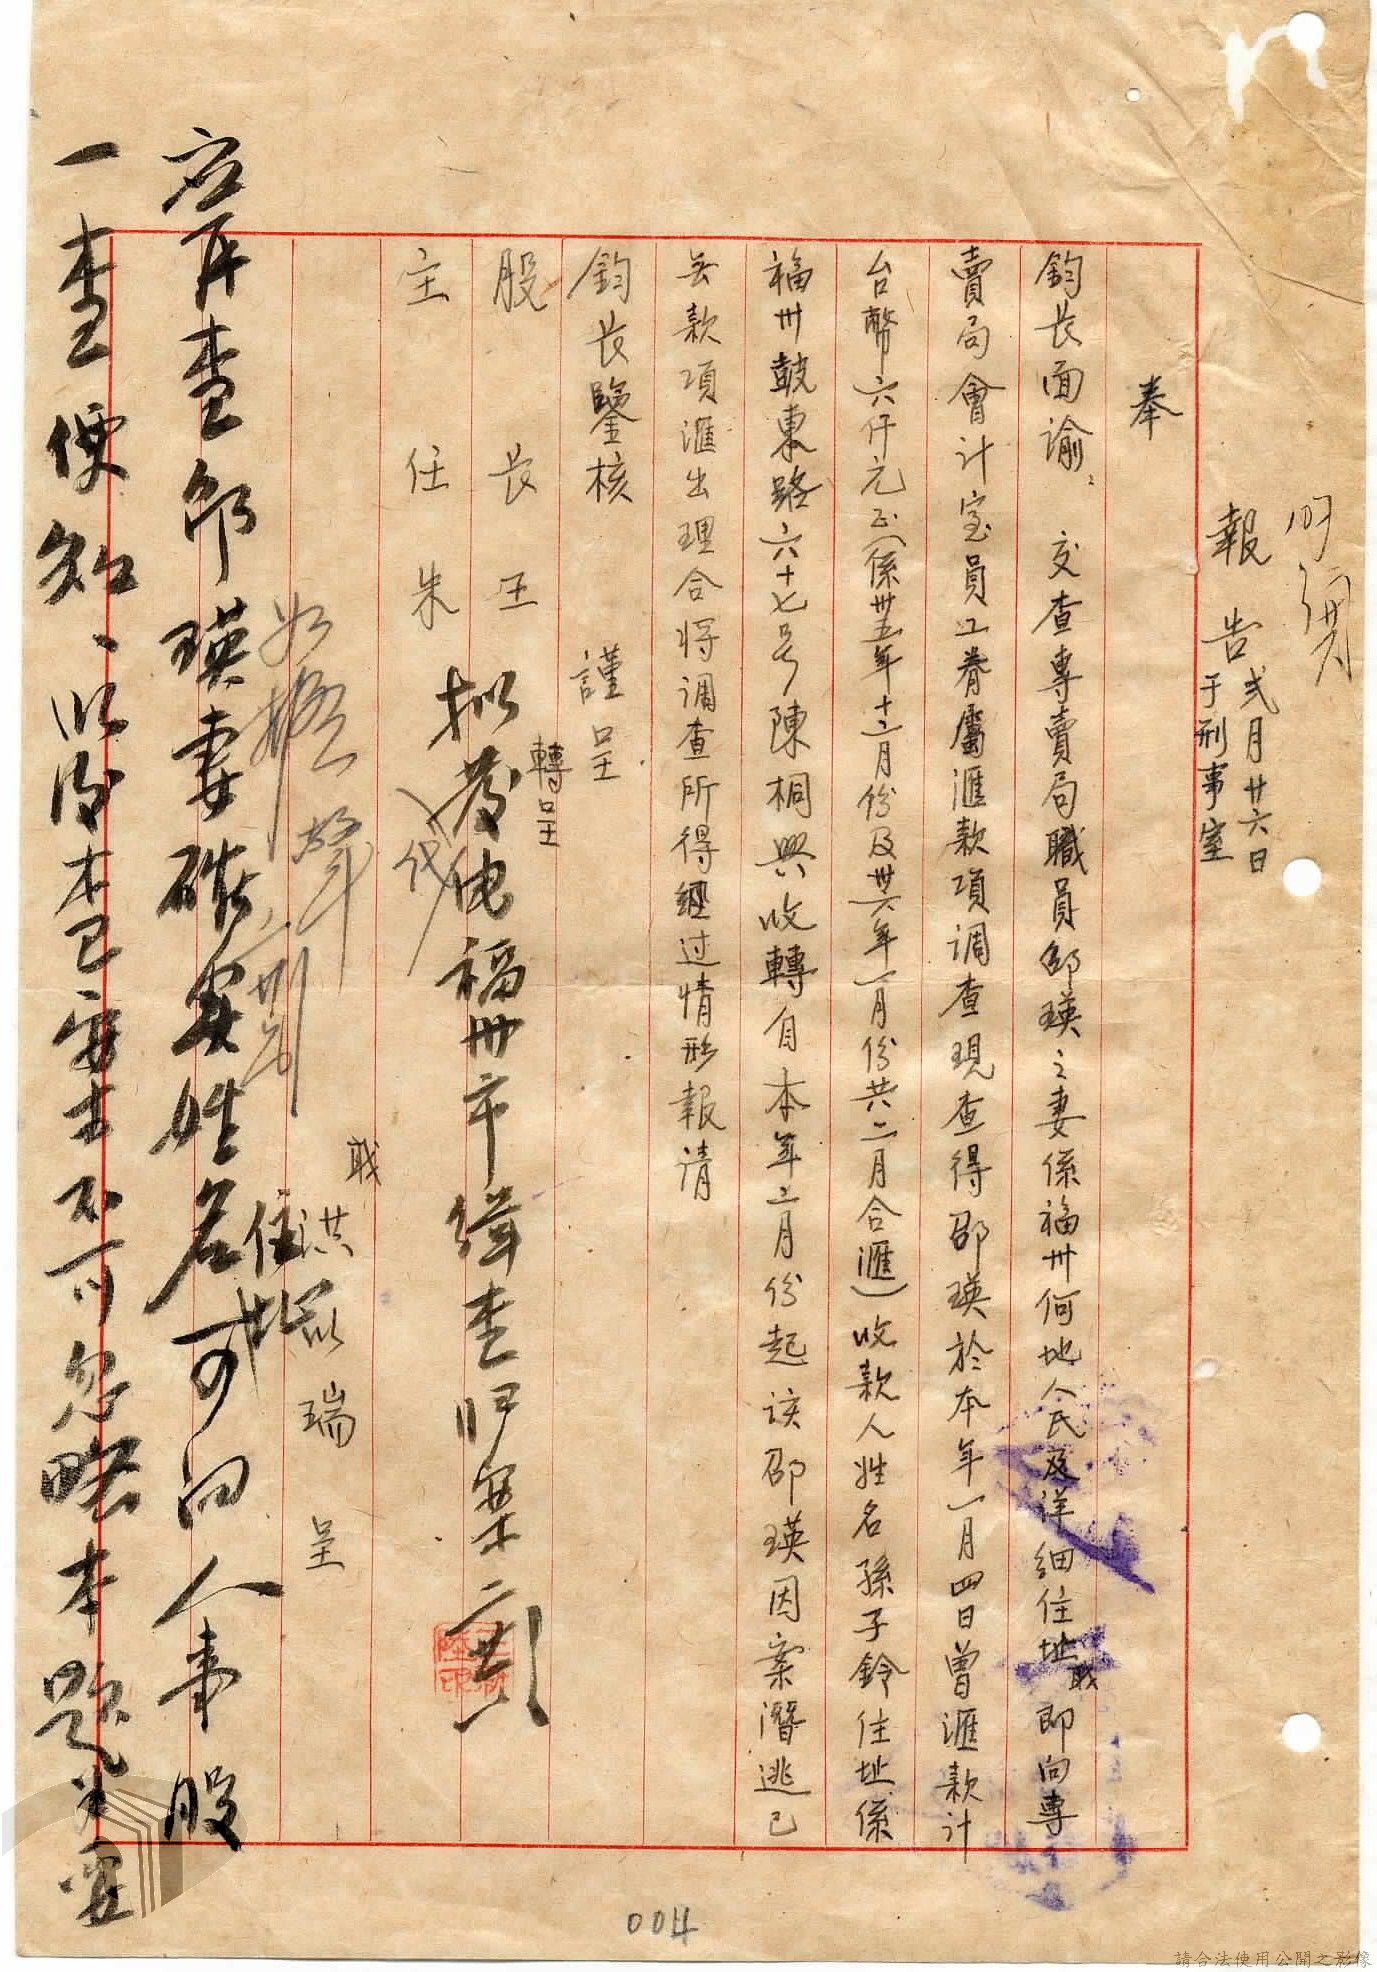 報告 弍月廿六日
于刑事室
奉
鈞長面諭 交查專賣局職員邵瑛之妻係福州何地人民及详细住址職即向專
賣局會计室員工眷屬滙款項调查現查得邵瑛於本年一月四日曾滙款计
台幣六仟元正(係卅五年十二月份及卅六年一月份共二月合滙)收款人姓名孫子鈴住址係
福州鼓東路六十七号陳桐興收轉自本年二月份起该邵瑛因案潛逃已
无款項滙出理合将调查所得經过情形報请
鈞長鑒核
謹呈
股長王 轉呈
主任朱
拟發电福州市缉查归案
職洪 瑞呈
应再查邵瑛妻确实姓名住址可向人事股
一查便知
不可忽略本题为要
004
請合法使用公開之影像